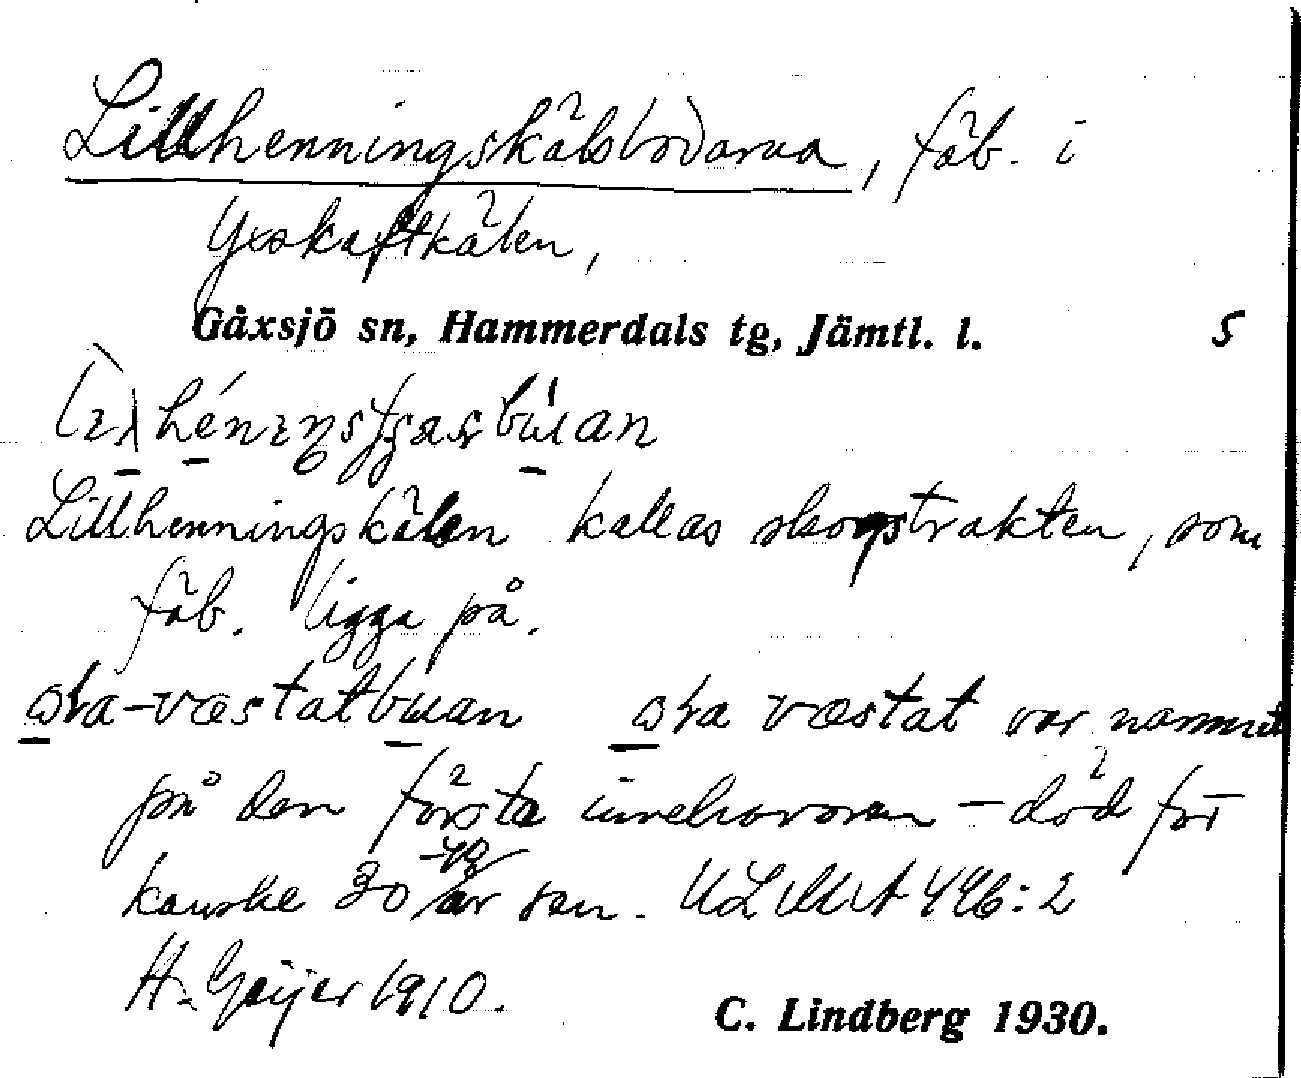 Lillhenningskälsbodarna, fäb. i
Yxskaftkälen,
Gåxsjö sn, Hammerdals tg, Jämtl. l. 5
Lillhenningskälen kallas skogstrakten, som
fäb. ligga på.
ska-væstatbuan ska væstat var namnet
på den första innehavaren – död för
kanske 30-40 år sen. ULMA 446:2
H. Geijer 1910.
C. Lindberg 1930.